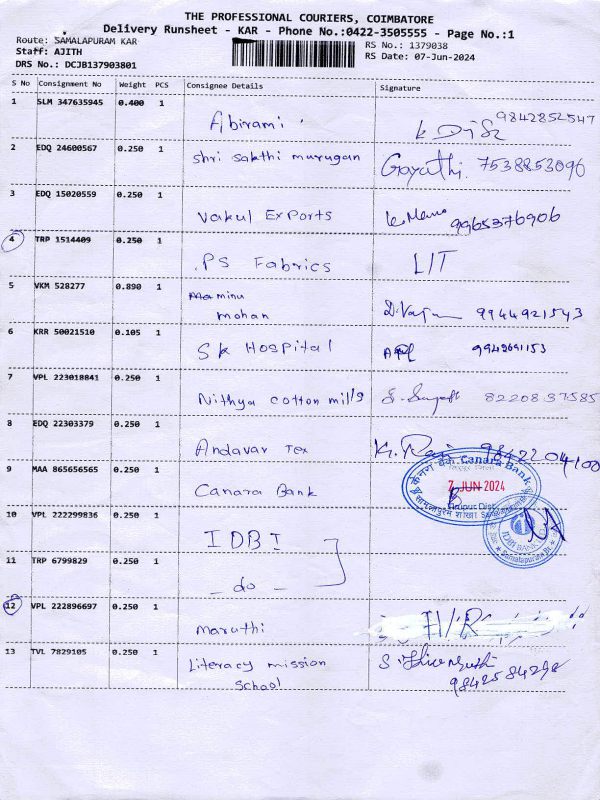 THE PROFESSIONAL COURIERS, COIMBATORE
Delivery Runsheet - KAR - Phone No.:0422-3505555 - Page No.:1
Route: SAMALAPURAM KAR
Staff: AJITH
DRS No.: DCJB137903801
RS No.: 1379038
RS Date: 07-Jun-2024
S No Consignment No Weight PCS Consignee Details Signature
1 SLM 347635945 0.400 1 Abirami 9842852547
2 EDQ 24600567 0.250 1 shri sakthi murugan Gayathi. 7538853096
3 EDQ 15020559 0.250 1 Vakul Exports 9965376906
4 TRP 1514409 0.250 1 PS Fabrics L/T
5 VKM 528277 0.890 1 minu
mohan 9944921543
6 KRR 50021510 0.105 1 SK Hospital
7 VPL 223018841 0.250 1 Nithya cotton mills 8220837585
8 EDQ 22303379 0.250 1 Andavar Tex 9842204100
9 MAA 865656565 0.250 1 Canara Bank
केनरा बैंक Canara Bank
7 JUN 2024
Tirupur Dist.
10 VPL 222299836 0.250 1 IDBI
IDBI BANK
Samalapuram Br.
11 TRP 6799829 0.250 1 - do -
12 VPL 222896697 0.250 1 Maruthi
13 TVL 7829105 0.250 1 Literacy mission
School 9842584298